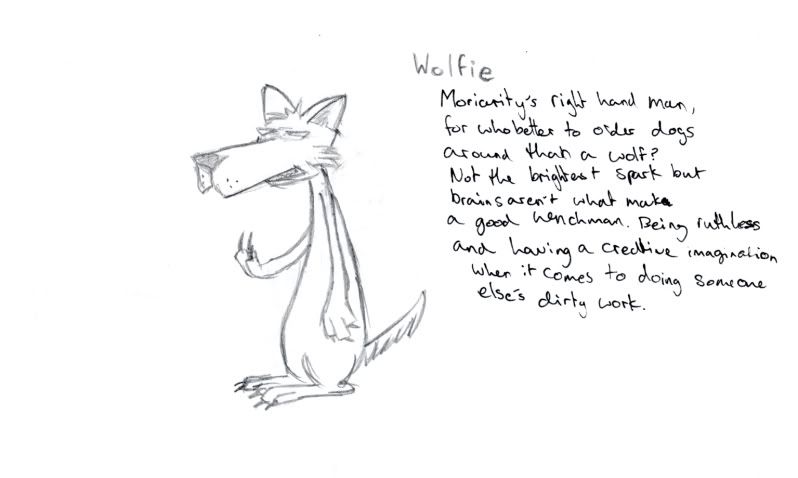 Wolfie
Moriarity's right hand man,
for who better to order dogs
around than a wolf?
Not the brightest spark but
brains aren't what make
a good henchman. Being ruthless
and having a creative imagination
when it comes to doing someone
else's dirty work.